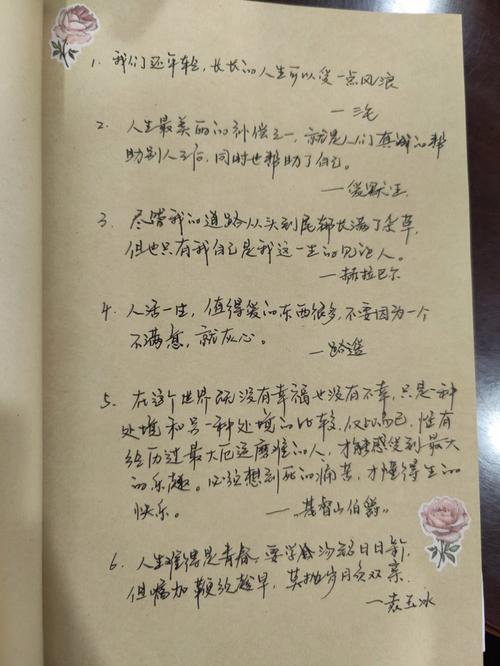 1. 我们还年轻，长长的人生可以受一点风浪
—三毛
2. 人生最美丽的补偿之一，就是人们真诚的帮
助别人之后，同时也帮助了自己。
—爱默生
3. 尽管我的道路从头到尾都长满了杂草，
但也只有我自己是我这一生的见证人。
—赫拉巴尔
4. 人活一生，值得爱的东西很多，不要因为一个
不满意，就灰心。
—路遥
5. 在这个世界既没有幸福也没有不幸，只是一种
处境和另一种处境的比较，仅此而已，惟有
经历过最大厄运磨难的人，才能感受到最大
的乐趣。必须想到死的痛苦，才懂得生的
快乐。 —《基督山伯爵》
6. 人生难得是青春，要学会汤铭日日新，
但嘱加鞭须趁早，莫抛岁月负双亲。
—袁玉冰